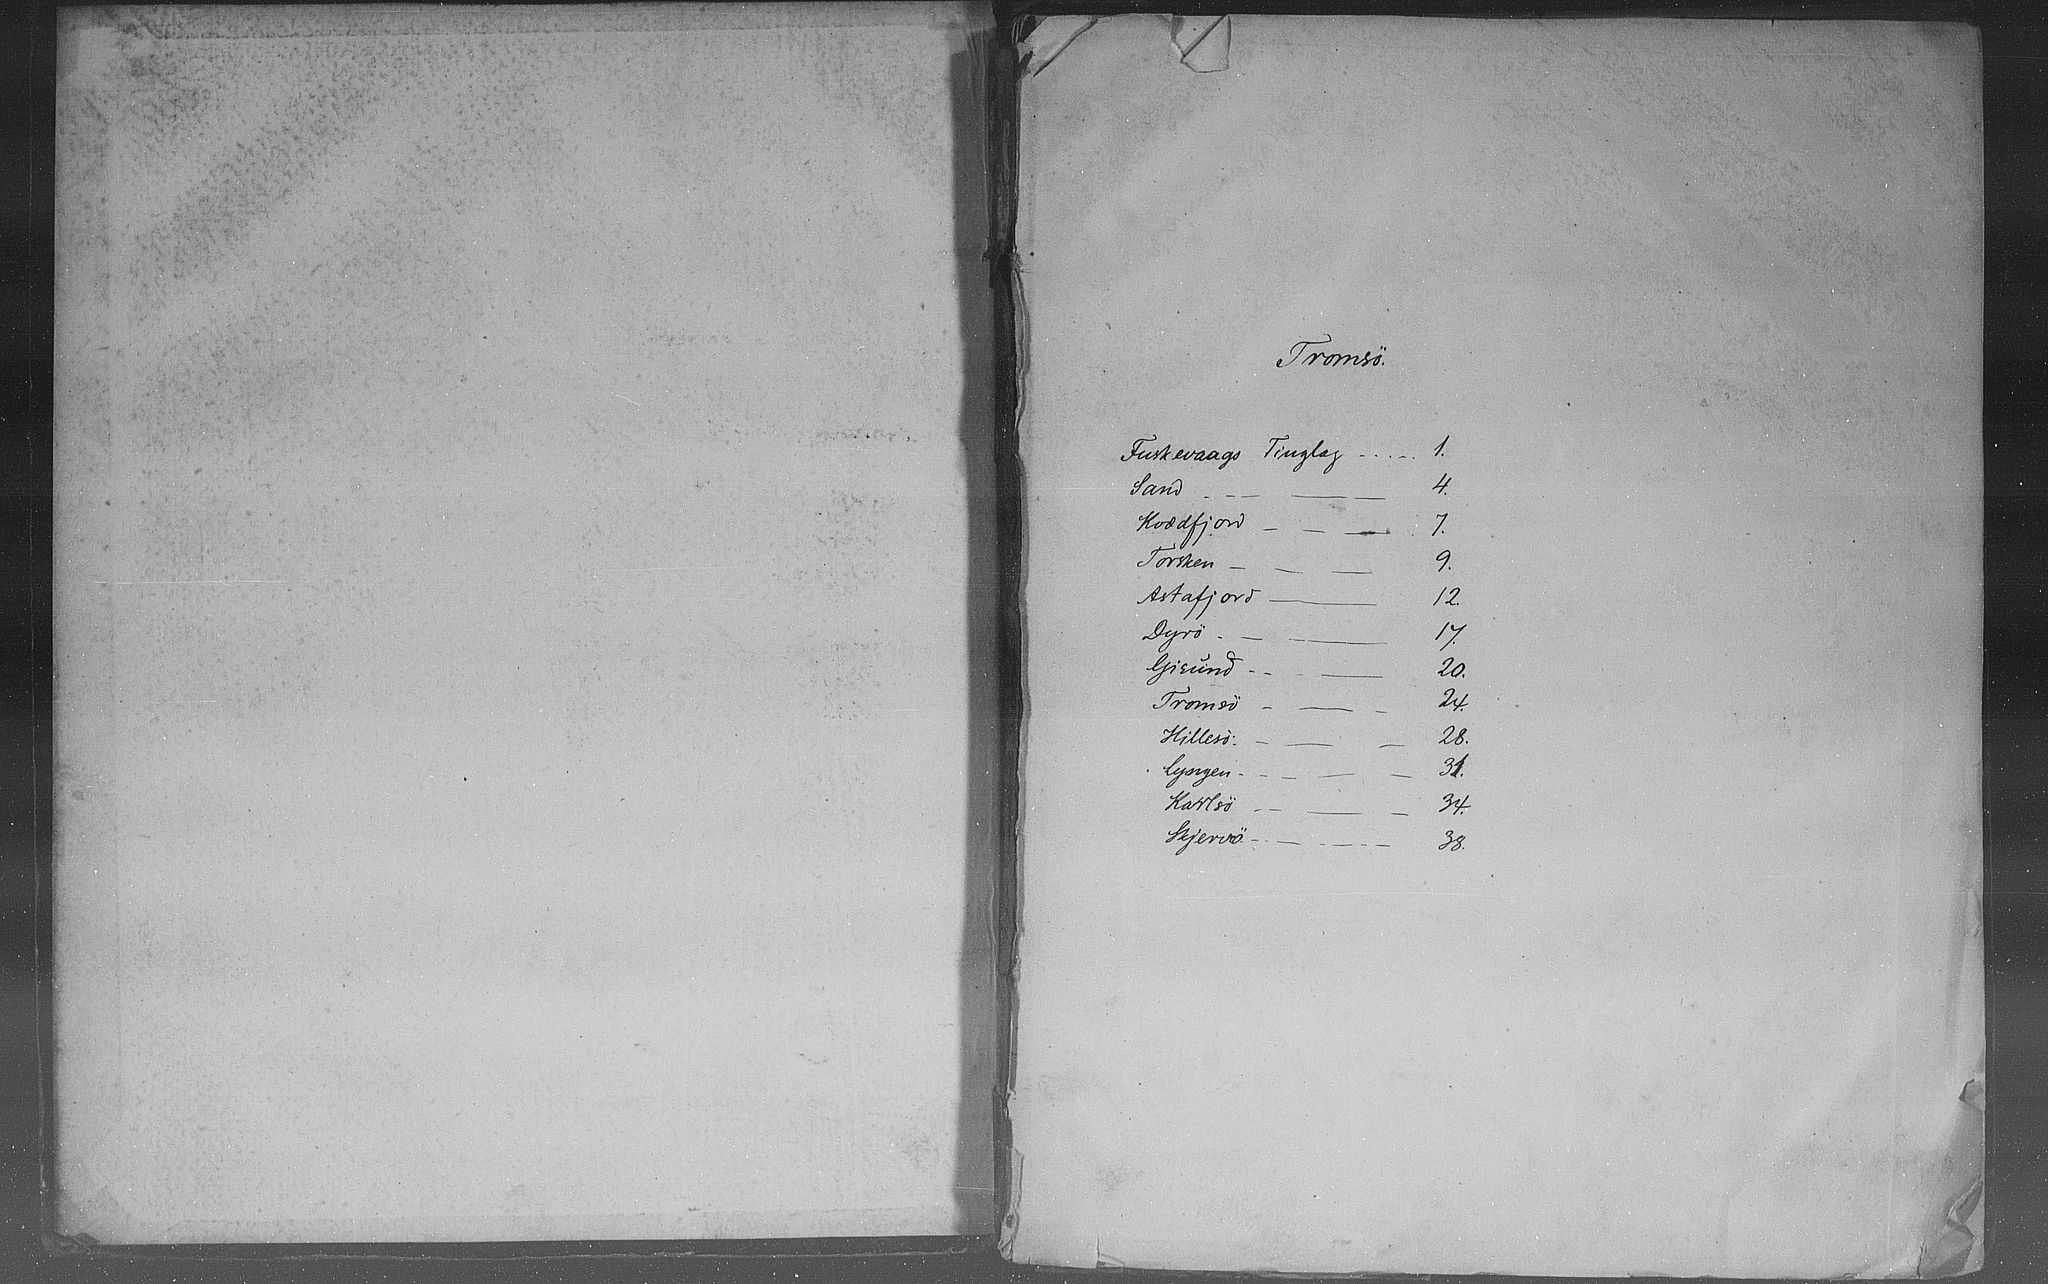 Tromsö.
Fuskevaags Tinglag ..... 1.
Sand . _ _ _ ___ __ 4.
Kvædfjord _ _ _ ___ 7.
Torsken _ __ ___ 9.
Astafjord ______ 12.
Dyrö . _ ______ 17.
Gisund _ _ . ____ 20.
Tromsö _ ___ _ 24.
Hillesö. _ ___ _ 28.
Lyngen. _ _ _ __ __ 31.
Karlsö _ _ ____ _ 34.
Skjervö _ . __ _ . _ __ 38.